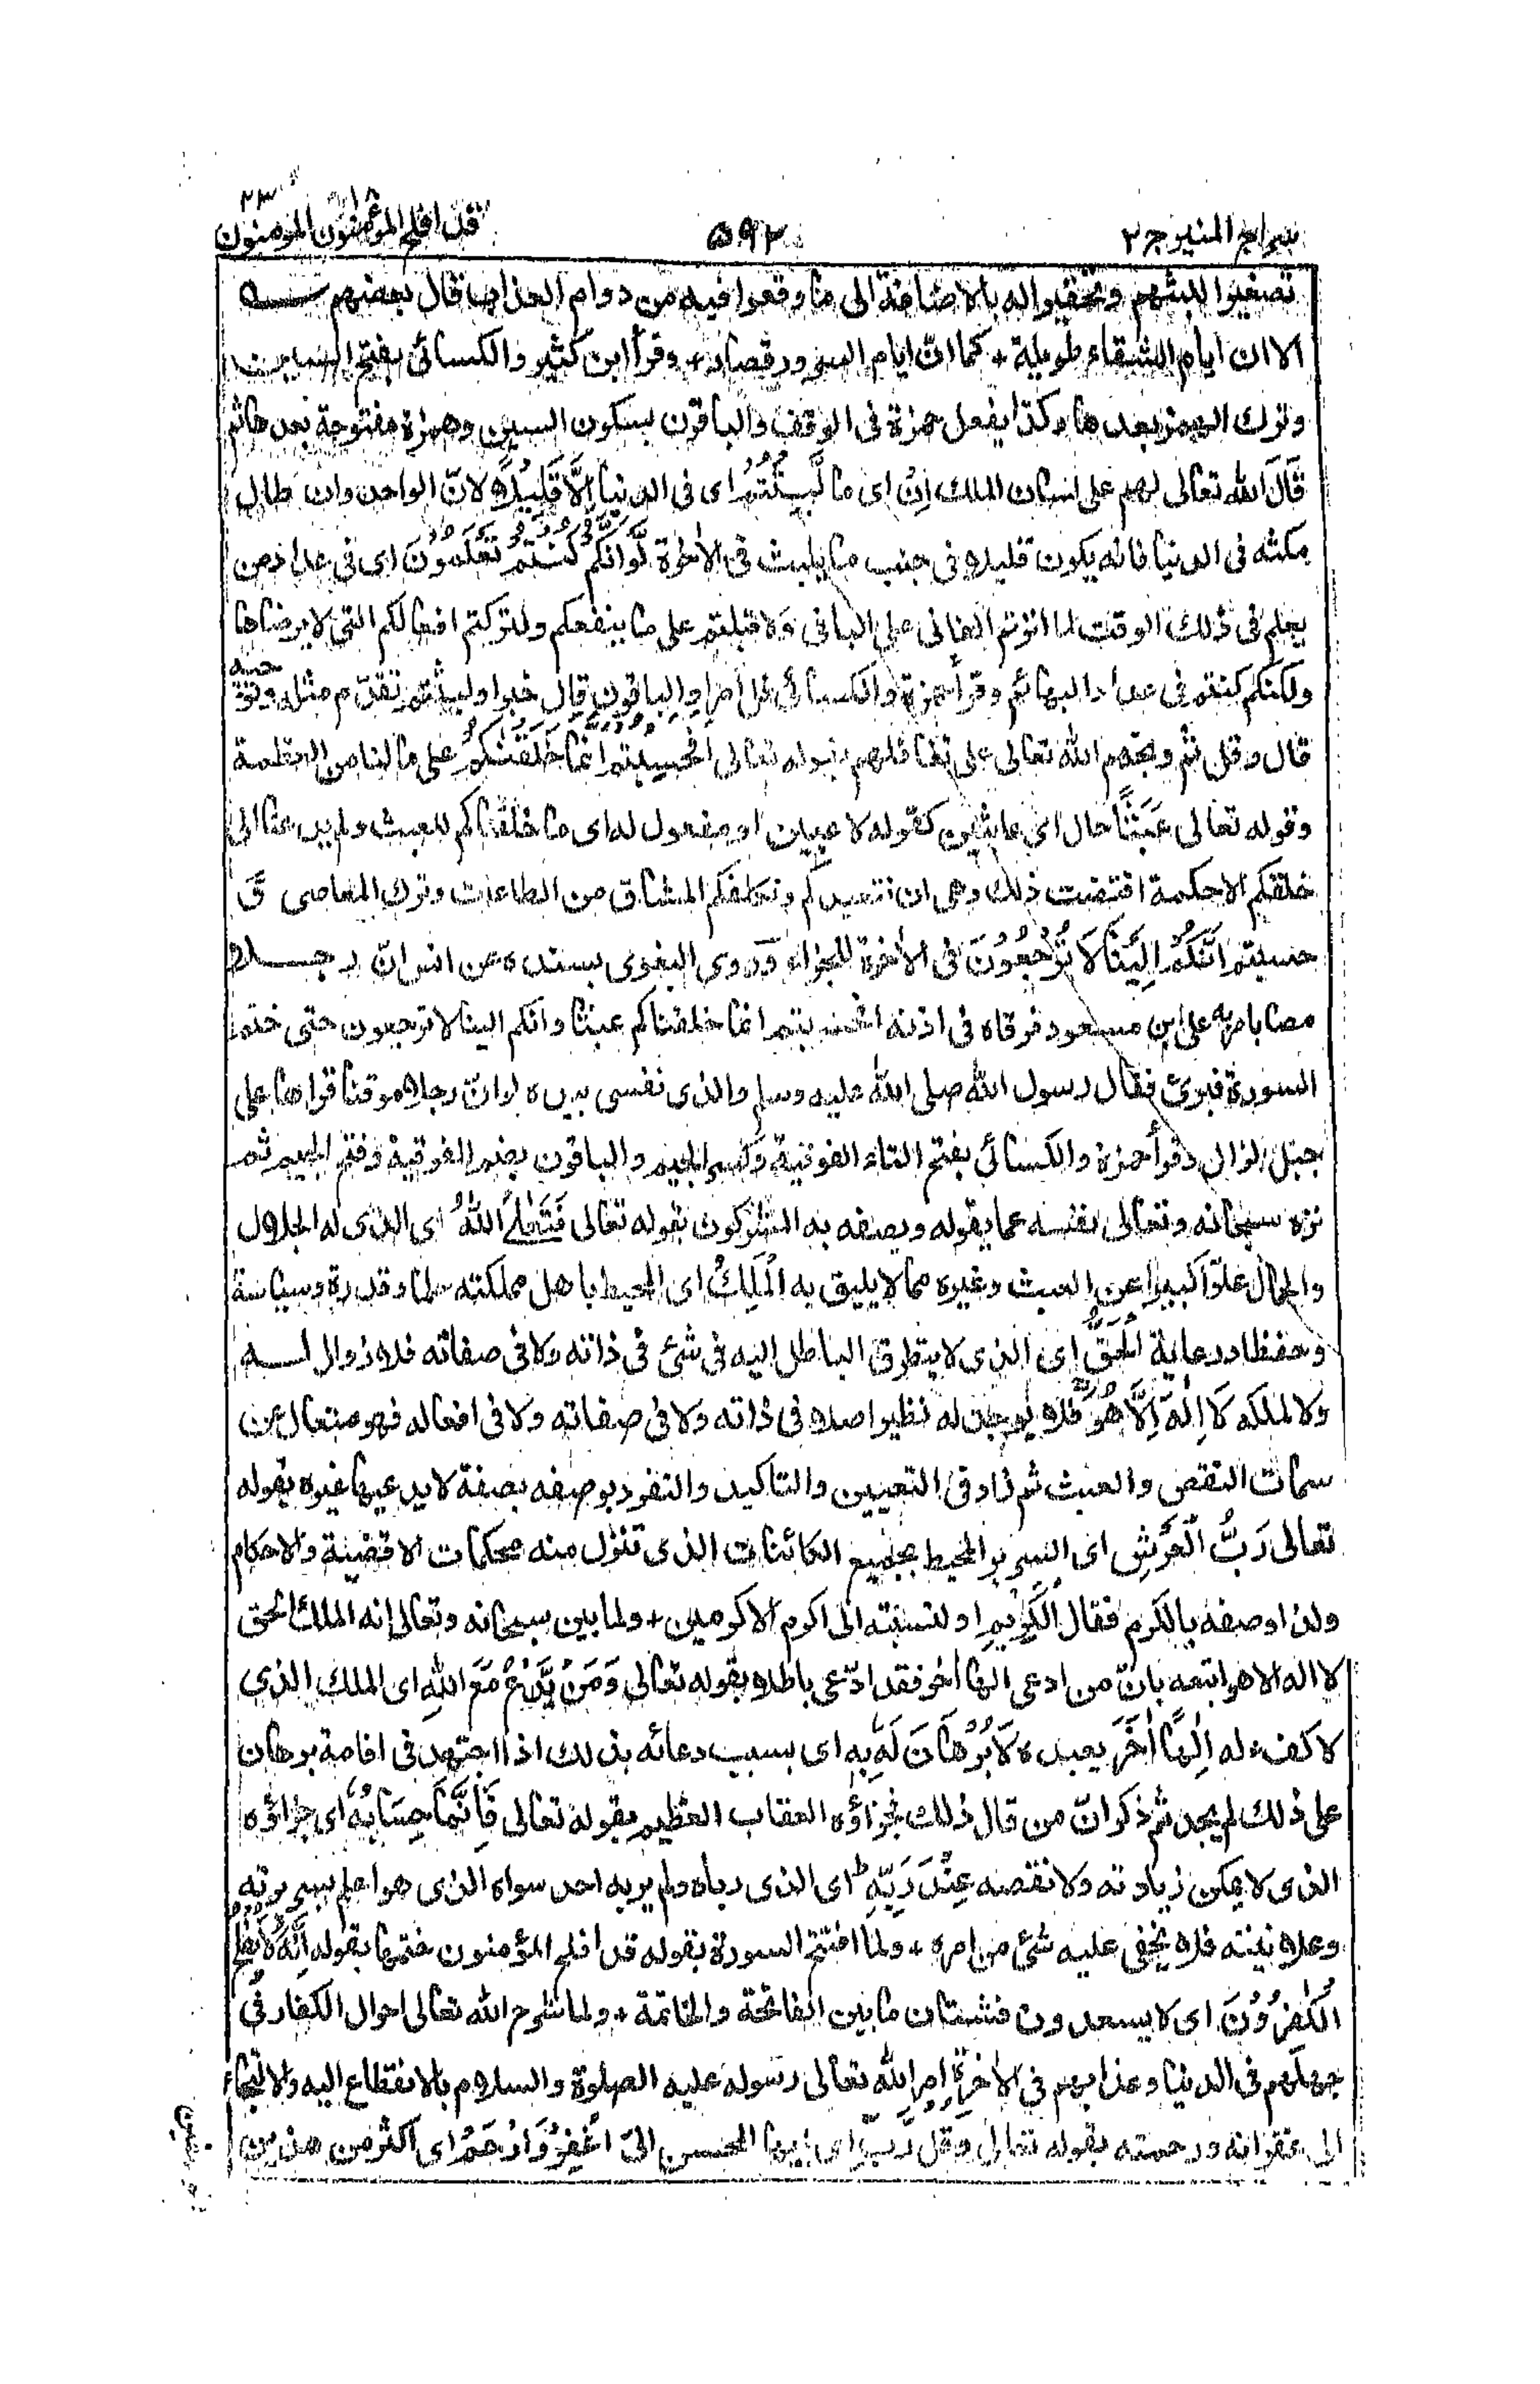 سراج المنير ج٢
٥٩٢
قد افلح ١٨ المؤمنون المؤمنون ٢٣
تصغيرا للبثهم وتحقيرا له بالاضافة الى ما وقعوا فيه من دوام العذاب قال بعضهم
الا ان ايام الشقاء طويلة + كما انّ ايام السرور قصار + وقرأ ابن كثير والكسائى بفتح السين
وترك الهمز بعدها وكذا يفعل حمزة فى الوقف والباقون بسكون السين وهمزة مفتوحة بعدها ثم
قَالَ الله تعالى لهم على لسان الملك اِنْ اى ما لَّبِثْتُمْ اى فى الدنيا اِلَّا قَلِيْلًا لانّ الواحد وان طال
مكثه فى الدنيا فانه يكون قليلا فى جنب ما يلبث فى الاٰخرة لَّوْ اَنَّكُمْ كُنْتُمْ تَعْلَمُوْنَ اى فى عداد من
يعلم فى ذلك الوقت لما اٰثرتم الفانى على الباقى ولاقبلتم على ما ينفعكم ولتركتم افعالكم التى لا يرضاها
ولكنكم كنتم فى عداد البهائم وقرأ حمزة والكسائى قل امرا والباقون قال خبرا ولبثتم تقدّم مثله وتوجيه
قال وقل ثم وبخهم الله تعالى على تغافلهم بقوله تعالى اَفَحَسِبْتُمْ اَنَّمَا خَلَقْنٰكُمْ على ما لنا من العظمة
وقوله تعالى عَبَثًا حال اى عابثين كقوله لاعبين او مفعول له اى ما خلقناكم للعبث ولم يدعنا الى
خلقكم الا حكمة اقتضت ذلك وهى ان نتعبدكم ونكلفكم المشاق من الطاعات وترك المعاصى وَّ
حسبتم اَنَّكُمْ اِلَيْنَا لَا تُرْجَعُوْنَ فى الاٰخرة للجزاء وروى البغوى بسنده عن انس انّ رجلا
مصابا مر به على ابن مسعود فرقاه فى اذنه افحسبتم انما خلقناكم عبثا وانكم الينا لا ترجعون حتى ختم
السورة فبرئ فقال رسول الله صلى الله عليه وسلم والذى نفسى بيده لو انّ رجلا موقنا قراها على
جبل لزال وقرأ حمزة والكسائى بفتح التاء الفوقية وكسر الجيم والباقون بضم الفوقية وفتح الجيم ثم
نزه سبحانه وتعالى نفسه عما يقوله ويصفه به المشركون بقوله تعالى فَتَعٰلَى اللّٰهُ اى الذى له الجلال
والجمال علوّا كبيرا عن العبث وغيره مما لا يليق به الْمَلِكُ اى المحيط باهل مملكته علما وقدرة وسياسة
وحفظا ورعاية الْحَقُّ اى الذى لا يتطرق الباطل اليه فى شئ فى ذاته ولا فى صفاته فلا زوال له
ولا لملكه لَا اِلٰهَ اِلَّا هُوَ فلا يوجد له نظير اصلا فى ذاته ولا فى صفاته ولا فى افعاله فهو متعال عن
سمات النقص والعبث ثم زاد فى التعيين والتاكيد والتفرد بوصفه بصفة لا يدعيها غيره بقوله
تعالى رَبُّ الْعَرْشِ اى السرير المحيط بجميع الكائنات الذى تنزل منه محكمات الاقضية والاحكام
ولذا وصفه بالكرم فقال الْكَرِيْمِ او لنسبته الى اكرم الاكرمين + ولما بين سبحانه وتعالى انه الملك الحق
لا اله الا هو اتبعه بانّ من ادعى الها اٰخر فقد ادّعى باطلا بقوله تعالى وَمَنْ يَّدْعُ مَعَ اللّٰهِ اى الملك الذى
لا كفء له اِلٰهًا اٰخَرَ يعبده لَا بُرْهَانَ لَهٗ بِهٖ اى بسبب دعائه بذلك اذا اجتهد فى اقامة برهان
على ذلك لم يجد ثم ذكر انّ من قال ذلك فجزاؤه العقاب العظيم بقوله تعالى فَاِنَّمَا حِسَابُهٗ اى جزاؤه
الذى لا يمكن زيادته ولا نقصه عِنْدَ رَبِّهٖ اى الذى رباه ولم يربه احد سواه الذى هو اعلم بسريرته
وعلانيته فلا يخفى عليه شئ من امره + ولما افتتح السورة بقوله قد افلح المؤمنون ختمها بقوله اِنَّهٗ لَا يُفْلِحُ
الْكٰفِرُوْنَ اى لا يسعدون فشتان ما بين الفاتحة والخاتمة + ولما شرح الله تعالى احوال الكفار فى
جهلهم فى الدنيا وعذابهم فى الاٰخرة امر الله تعالى رسوله عليه الصلوة والسلام بالانقطاع اليه والالتجاء
الى غفرانه ورحمته بقوله تعالى وقل رَّبِّ اى ايها المحسن الىّ اغْفِرْ وَارْحَمْ اى اكثر من هذين